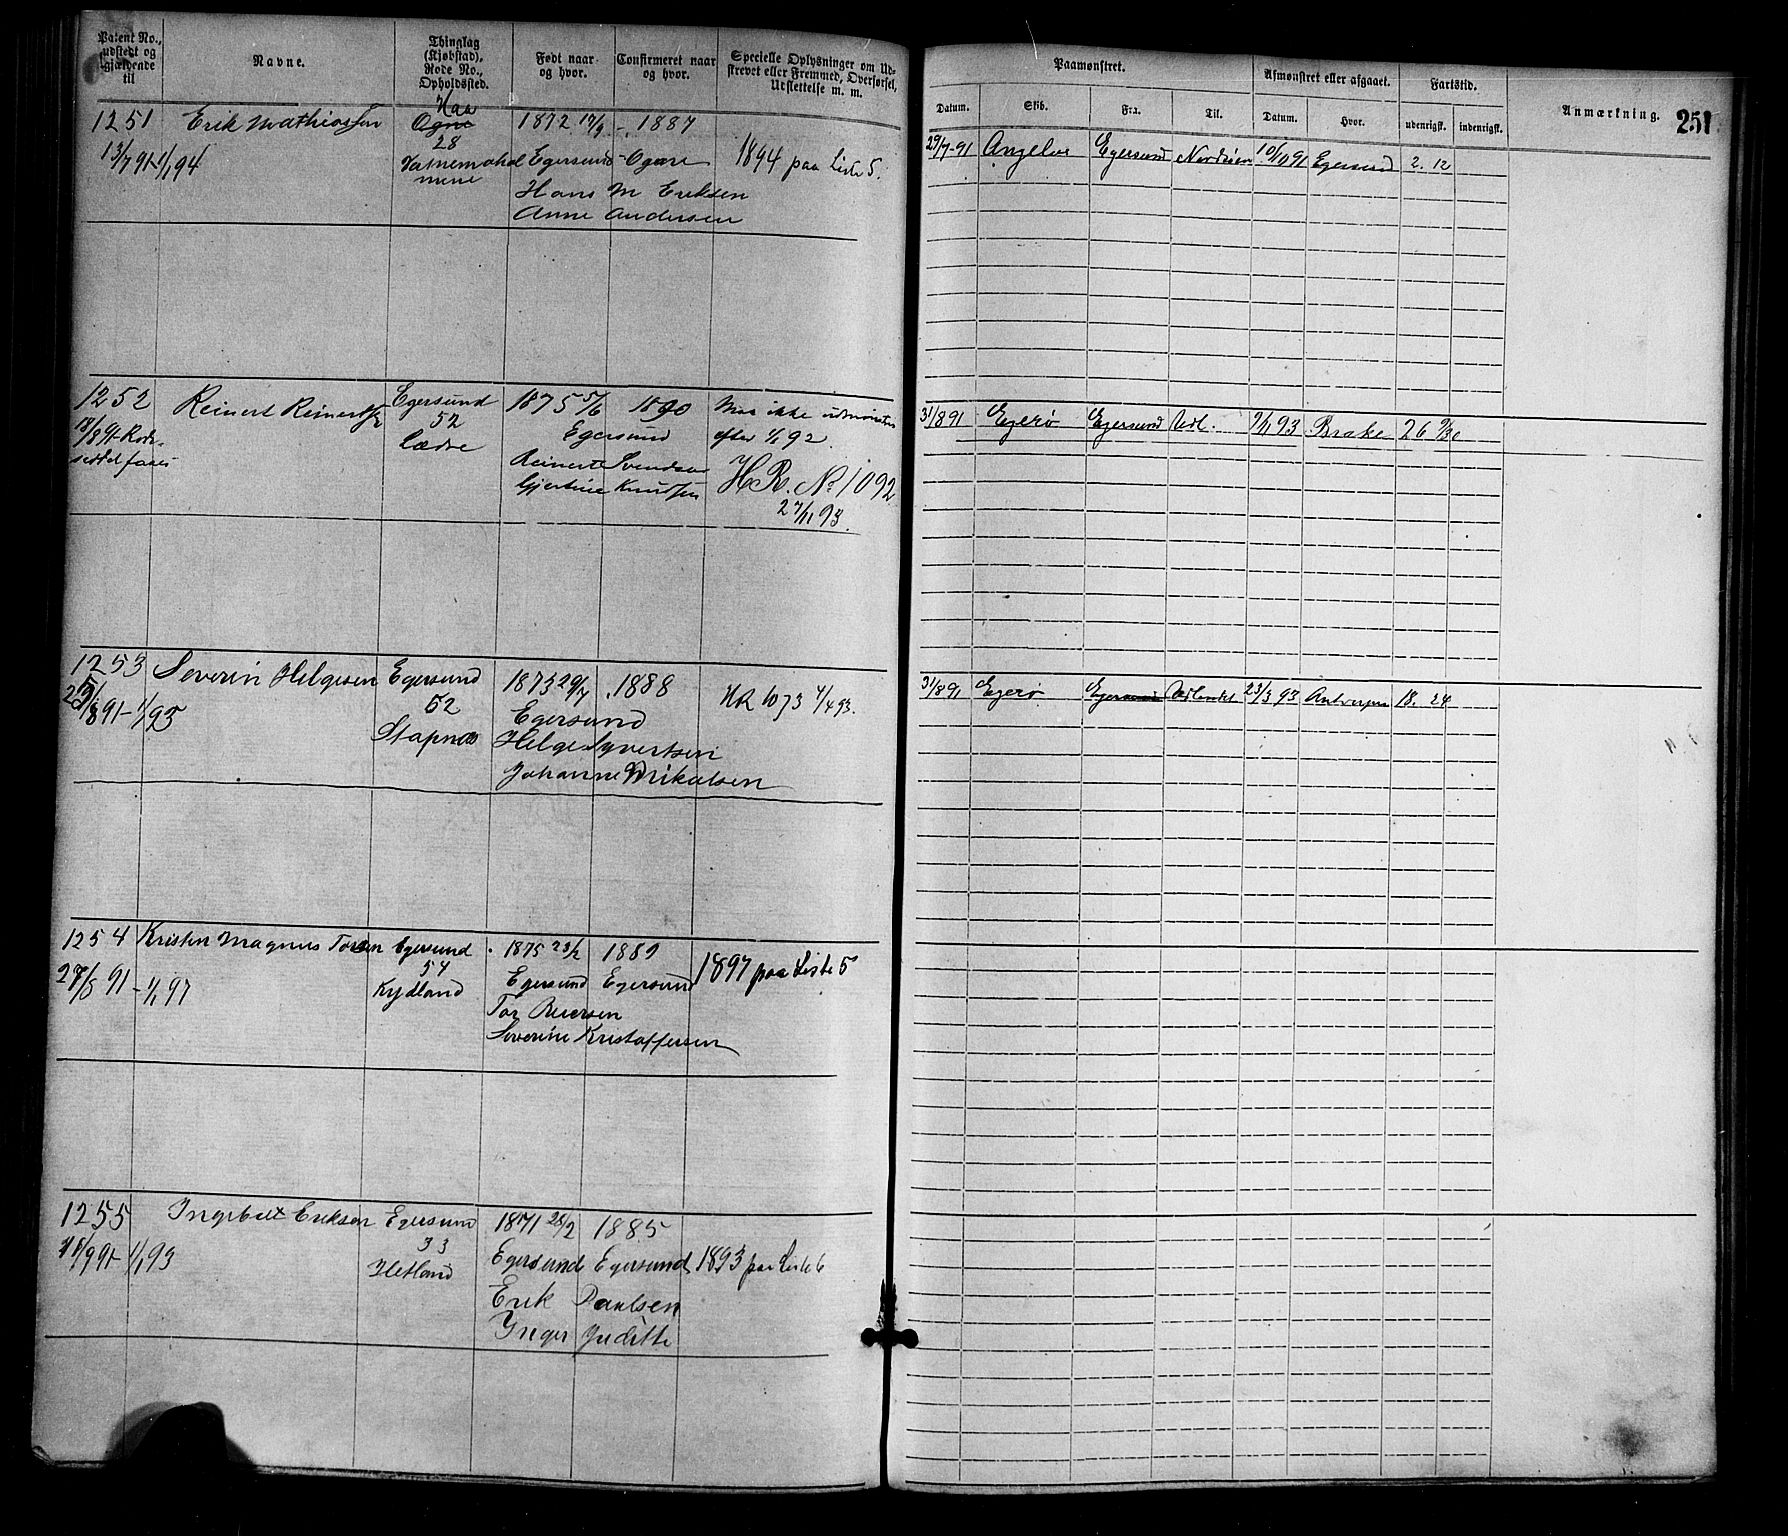 Patent No., udstedt og gjældende til
Navne.
Thinglag (Kjøbstad). Rode No., Opholdssted.
Født naar og hvor.
Confirmeret naar og hvor.
Specielle Oplysninger om Udstrevet eller Fremmed, Overførsel, Udslettelse m. m.
Paamønstret.
Afmønstret eller afgaaet.
Fartstid.
Anmærkning.
251
Datum.
Skib.
Fra.
Til.
Datum.
Hvor.
udenrigsk.
indenrigsk.
1251
Erik Mathiassen
Haa
Ogne
28
1872 17/9
1887
13/7 91-1/1 94
Egersund
Ogne
1894 paa Liste 5.
Hans M Eriksen
Anne Andersen
29/7-91
Angelos
Egersund
10/10 91
Egersund
2. 12
1252
Reinert Reinertsen
Egersund
52
1875 5/6
1890
Maa ikke udmønstres
efter 1/1 92.
Egersund
Reinert Svendsen
Gjertine Knudsen
H R. No 1092
27/11 93.
31/8 91
Egerø
Egersund
Udl.
9/11 93
Brake
26 9/30
1253
Severin Helgesen
Egersund
52
Stapnes
1873 29/7
1888
Egersund
Helge Syvertsen
Johanne Mikalsen
25/8 91-1/1 95
HR 1073 4/4 93.
31/8 91
Egerø
Egersund
Udlandet
23/3 93
Antverpen
18. 24
1254
Kristen Magnus Torsen
Egersund
54
Kydland
1875 23/2
1889
Egersund
Egersund
1897 paa Liste 5
27/8 91-1/1 97
Severine Kristoffersen
1255
Ingebret Eriksen
Egersund
33
Hetland
1871 28/2
1885
Egersund
Egersund
1893 paa Liste 6
Erik Paulsen
Inger Juditte